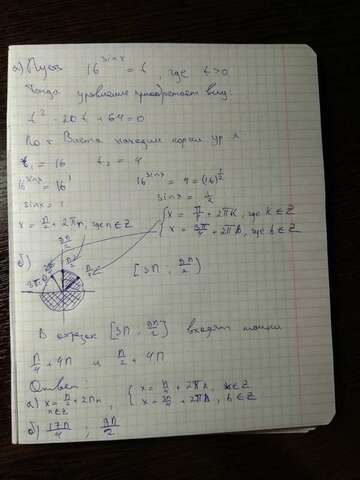 а) Пусть 16^sinx = t, где t>0
Тогда уравнение приобретает вид:
t² - 20t + 64 = 0
По т. Виета находим корни ур
t₁ = 16 t₂ = 4
16^sinx = 16¹ 16^sinx = 4 = (16)^½
sinx = 1 sinx = ½
x = π/2 + 2πn, где n∈Z { x = π/4 + 2πk, где k∈Z
x = 3π/4 + 2πb, где b∈Z
б) [3π ; 9π/2)
В отрезок [3π ; 9π/2] входят точки
π/4 + 4π и π/2 + 4π
Ответ:
а) x = π/2 + 2πn, { x = π/4 + 2πk, k∈Z
n∈Z x = 3π/4 + 2πb, b∈Z
б) 17π/4 ; 9π/2